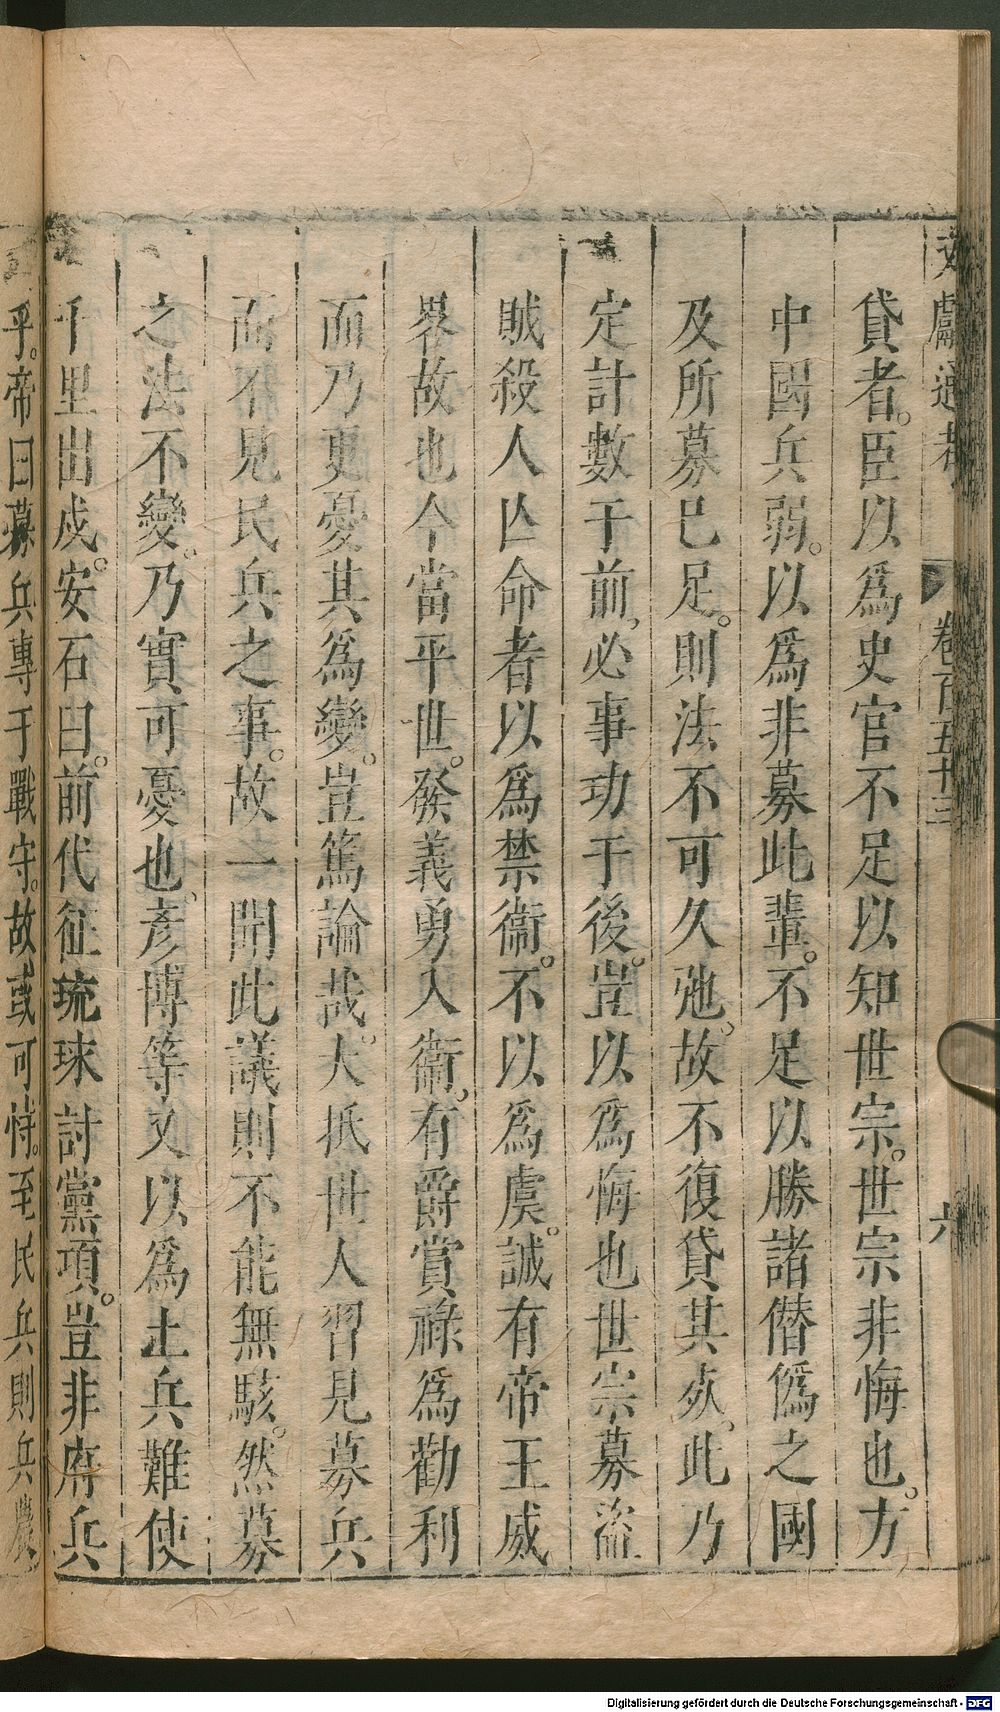 文獻通考 卷一百五十三 六
貸者。臣以爲史官不足以知世宗。世宗非悔也。方
中國兵弱。以爲非募此輩。不足以勝諸僭僞之國
及所募已足。則法不可久弛。故不復貸其死。此乃
定計數于前，必事功于後。豈以爲悔也世宗募盜
賊殺人亾命者以爲禁衞。不以爲虞。誠有帝王威
畧故也今當平世。發義勇入衞。有爵賞祿爲勸利
而乃更憂其爲變。豈篤論哉。大抵世人習見募兵
而不見民兵之事。故一開此議則不能無駭。然募
之法不變。乃實可憂也。彥博等又以爲土兵難使
千里出戍。安石曰。前代征琉球討黨項。豈非府兵
乎。帝曰募兵專于戰守。故或可恃。至民兵則兵農
Digitalisierung gefördert durch die Deutsche Forschungsgemeinschaft - DFG